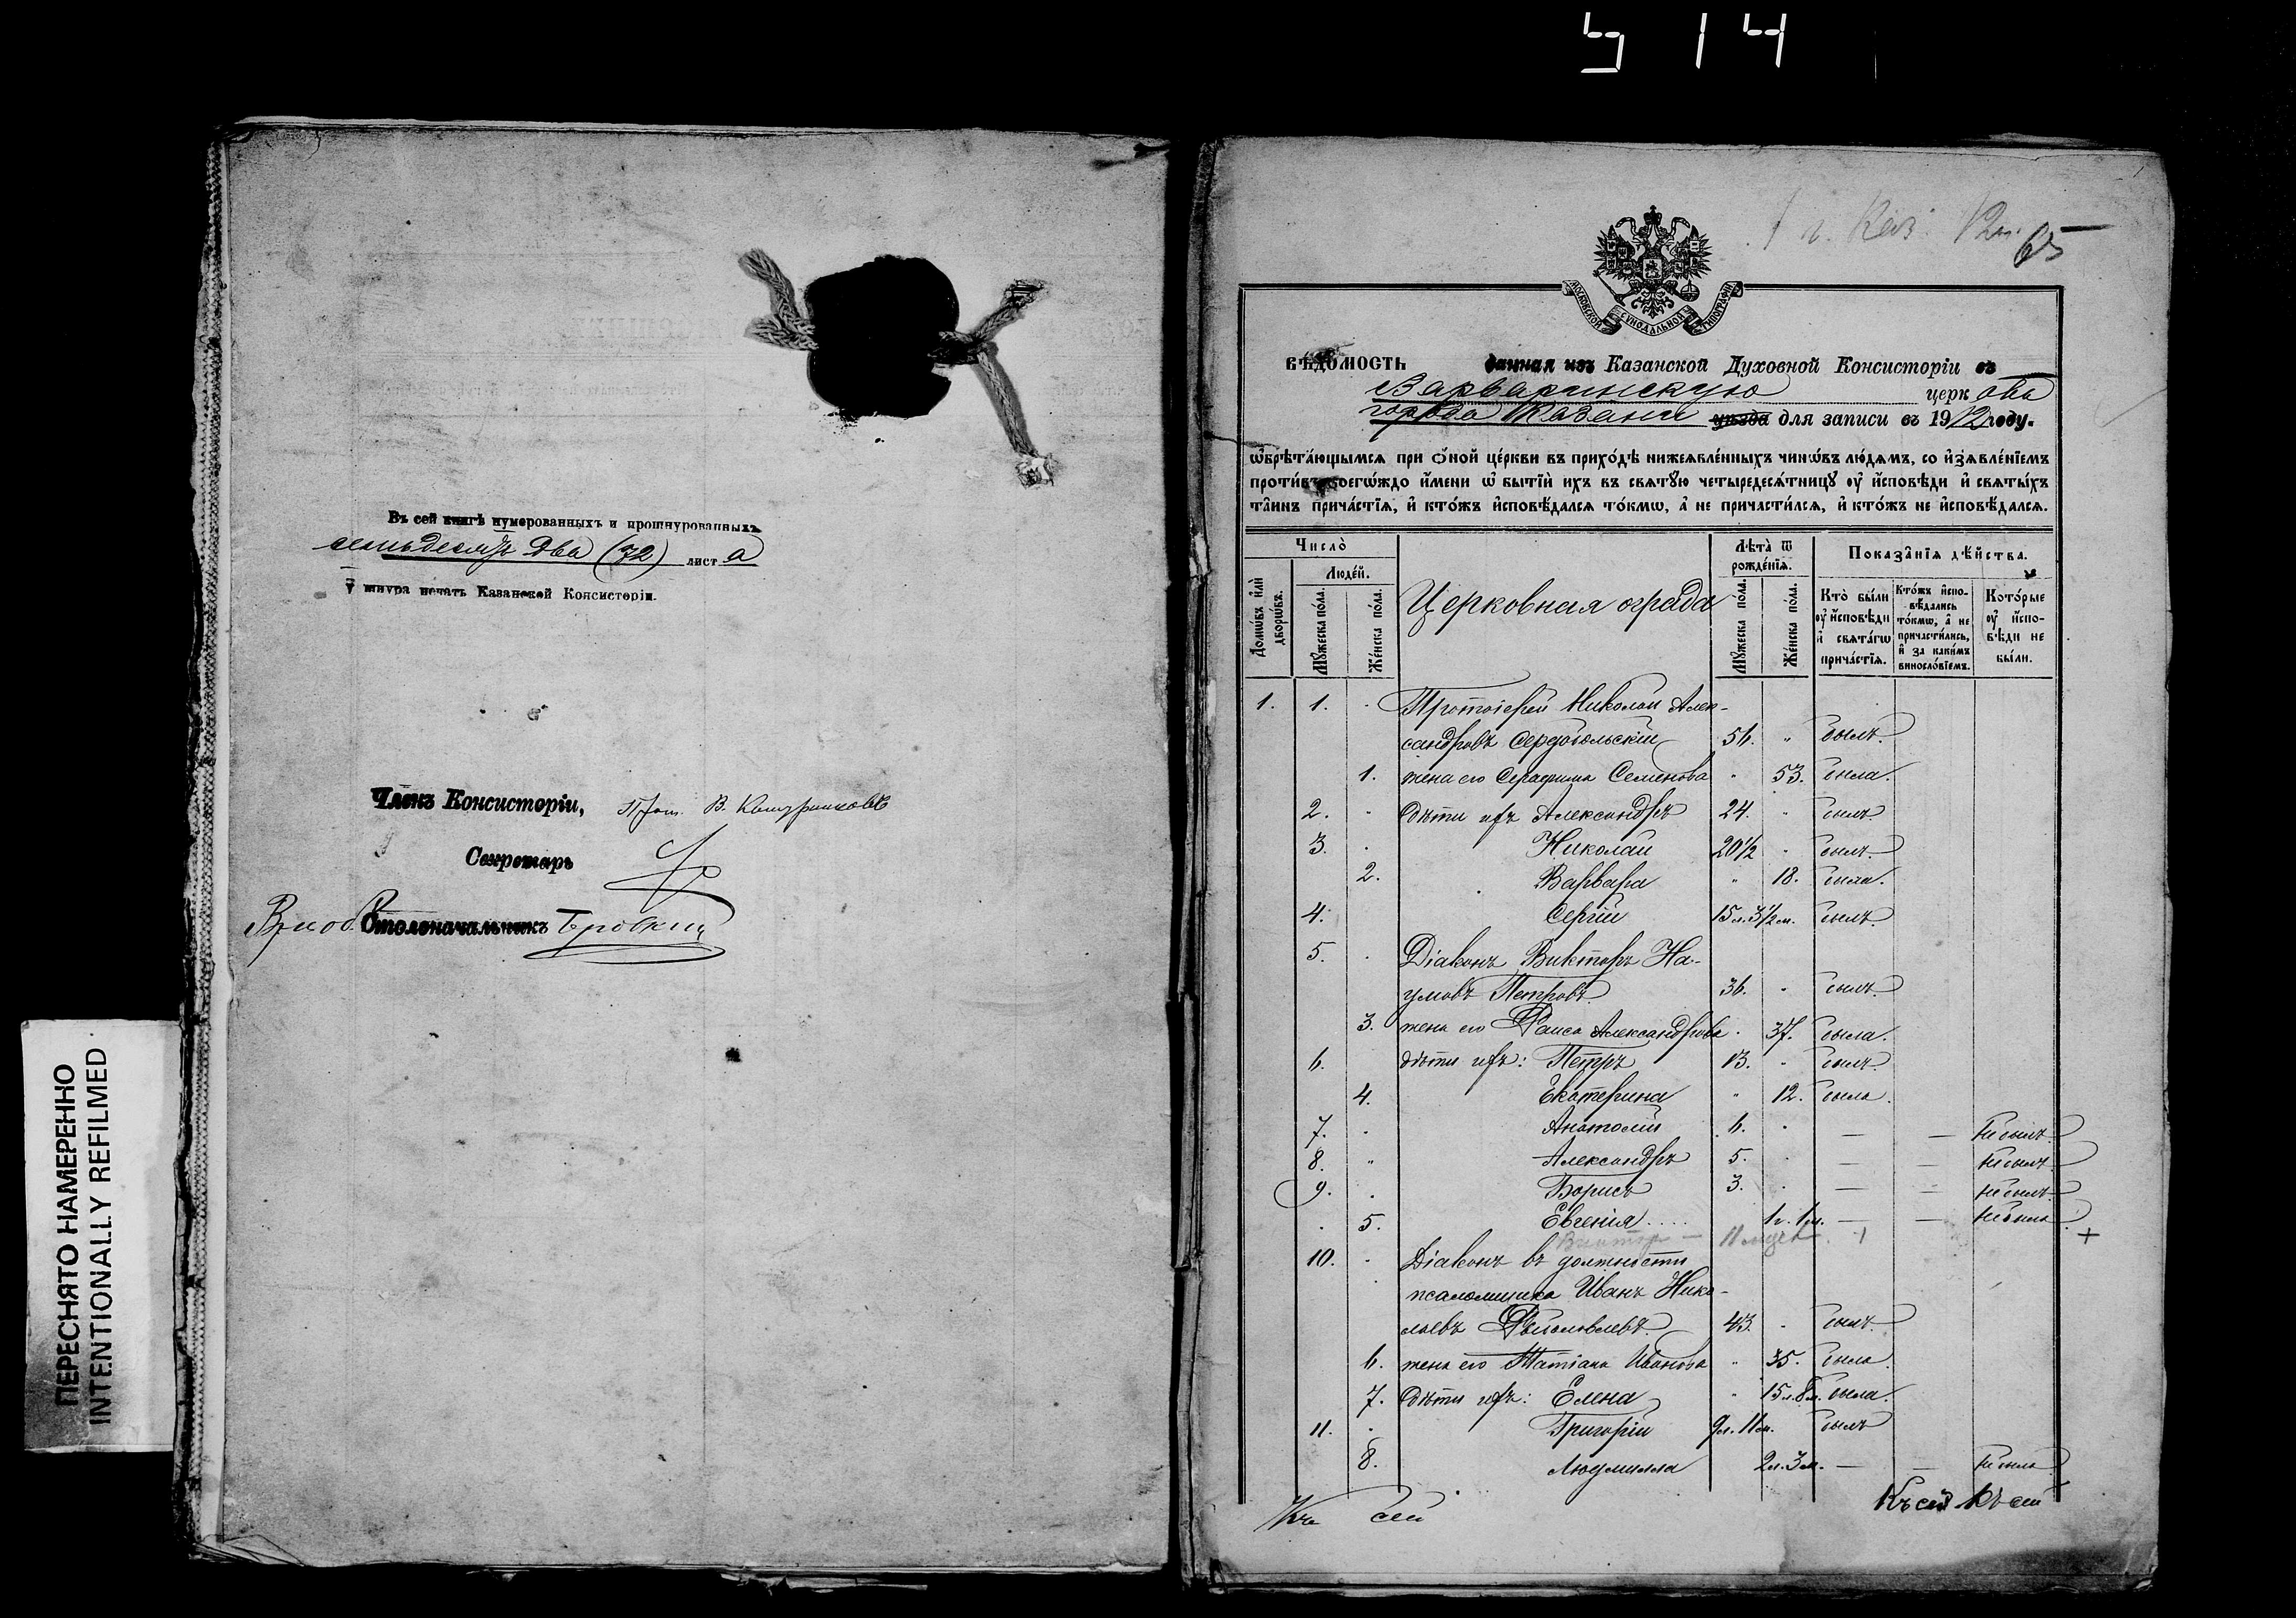 514
Въ сей книгѣ нумерованныхъ и прошнурованныхъ
семьдесятъ два (72) листа
у шнура печать Казанской Консисторіи.
Членъ Консисторіи, Прот. В.
Секретарь
Столоначальникъ
ПЕРЕСНЯТО НАМЕРЕННО
INTENTIONALLY REFILMED
65
МОСКОВСКОЙ СѴНОДАЛЬНОЙ ТИПОГРАФІИ
вѣ́домость данная изъ Казанской Духовной Консисторіи въ
Варваринскую церковь
города Казани уѣзда для записи въ 1912 году.
ѡ҆брѣта́ющымсѧ при ѻ҆́ной це́ркви въ прихо́дѣ нижеѧвле́нныхъ чинѡ́въ лю́дѧмъ, со и҆з̾ѧвле́нїемъ
проти́въ коегѡ́ждо и҆́мени ѡ҆ бытїѝ и҆хъ въ свѧтꙋ́ю четыредесѧ́тницꙋ ᲂу҆ и҆сповѣ́ди и҆ свѧты́хъ
та̑инъ прича́стїѧ, и҆ кто́жъ и҆сповѣ́далсѧ то́кмѡ, а҆ не причасти́лсѧ, и҆ кто́жъ не и҆сповѣ́далсѧ.
Число̀
Домѡ́въ и҆лѝ дворѡ́въ.
Люде́й.
Мꙋ́жеска по́ла.
Же́нска по́ла.
Церковная ограда
Лѣ̑та ѿ рожде́нїѧ.
Мꙋ́жеска по́ла.
Же́нска по́ла.
Показа̑нїѧ дѣ́йства.
Кто̀ бы́ли ᲂу҆ и҆сповѣ́ди и҆ свѧта́гѡ прича́стїѧ.
Кто́жъ и҆сповѣ́дались то́кмѡ, а҆ не причасти́лись, и҆ за каки́мъ виносло́вїемъ.
Кото́рые ᲂу҆ и҆сповѣ́ди не бы́ли.
1. 1. Протоіерей Николай Алек-
сандровъ Сердобольскій 56. былъ.
1. жена его Серафима Семенова 53. была.
2. дѣти ихъ Александръ 24. былъ.
3. Николай 20½ былъ.
2. Варвара 18. была.
4. Сергій 15л.3½м. былъ.
5. Діаконъ Викторъ На-
умовъ Петровъ 36. былъ.
3. жена его Раиса Александрова 37. была.
6. дѣти ихъ: Петръ 13. былъ.
4. Екатерина 12. была.
7. Анатолій 6. — — не былъ
8. Александръ 5. — — не былъ
9. Борисъ 3. — — не былъ
5. Евгенія 1г. 1м. — — не была
Викторъ — 11 мцев +
10. Діаконъ въ должности
псаломщика Иванъ Нико-
лаевъ 43. былъ.
6. жена его Татіана Иванова 35. была.
7. дѣти ихъ: Елена 15л.8м. была.
11. Григорій 9л.11м. былъ
8. Людмилла 2л.3м. — — не была
Къ сей Къ сей